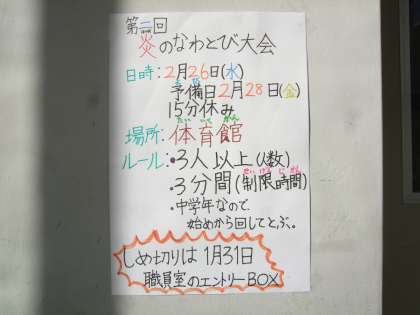 第二回
炎のなわとび大会
日時:2月26日(水)
予備日2月28日(金)
15分休み
たいいくかん
場所:体育館
ルール:・3人以上(人数)
せいげんじかん
・3分間(制限時間)
・中学年なので、
始めから回してとぶ。
しめ切りは1月31日
職員室のエントリーBOX